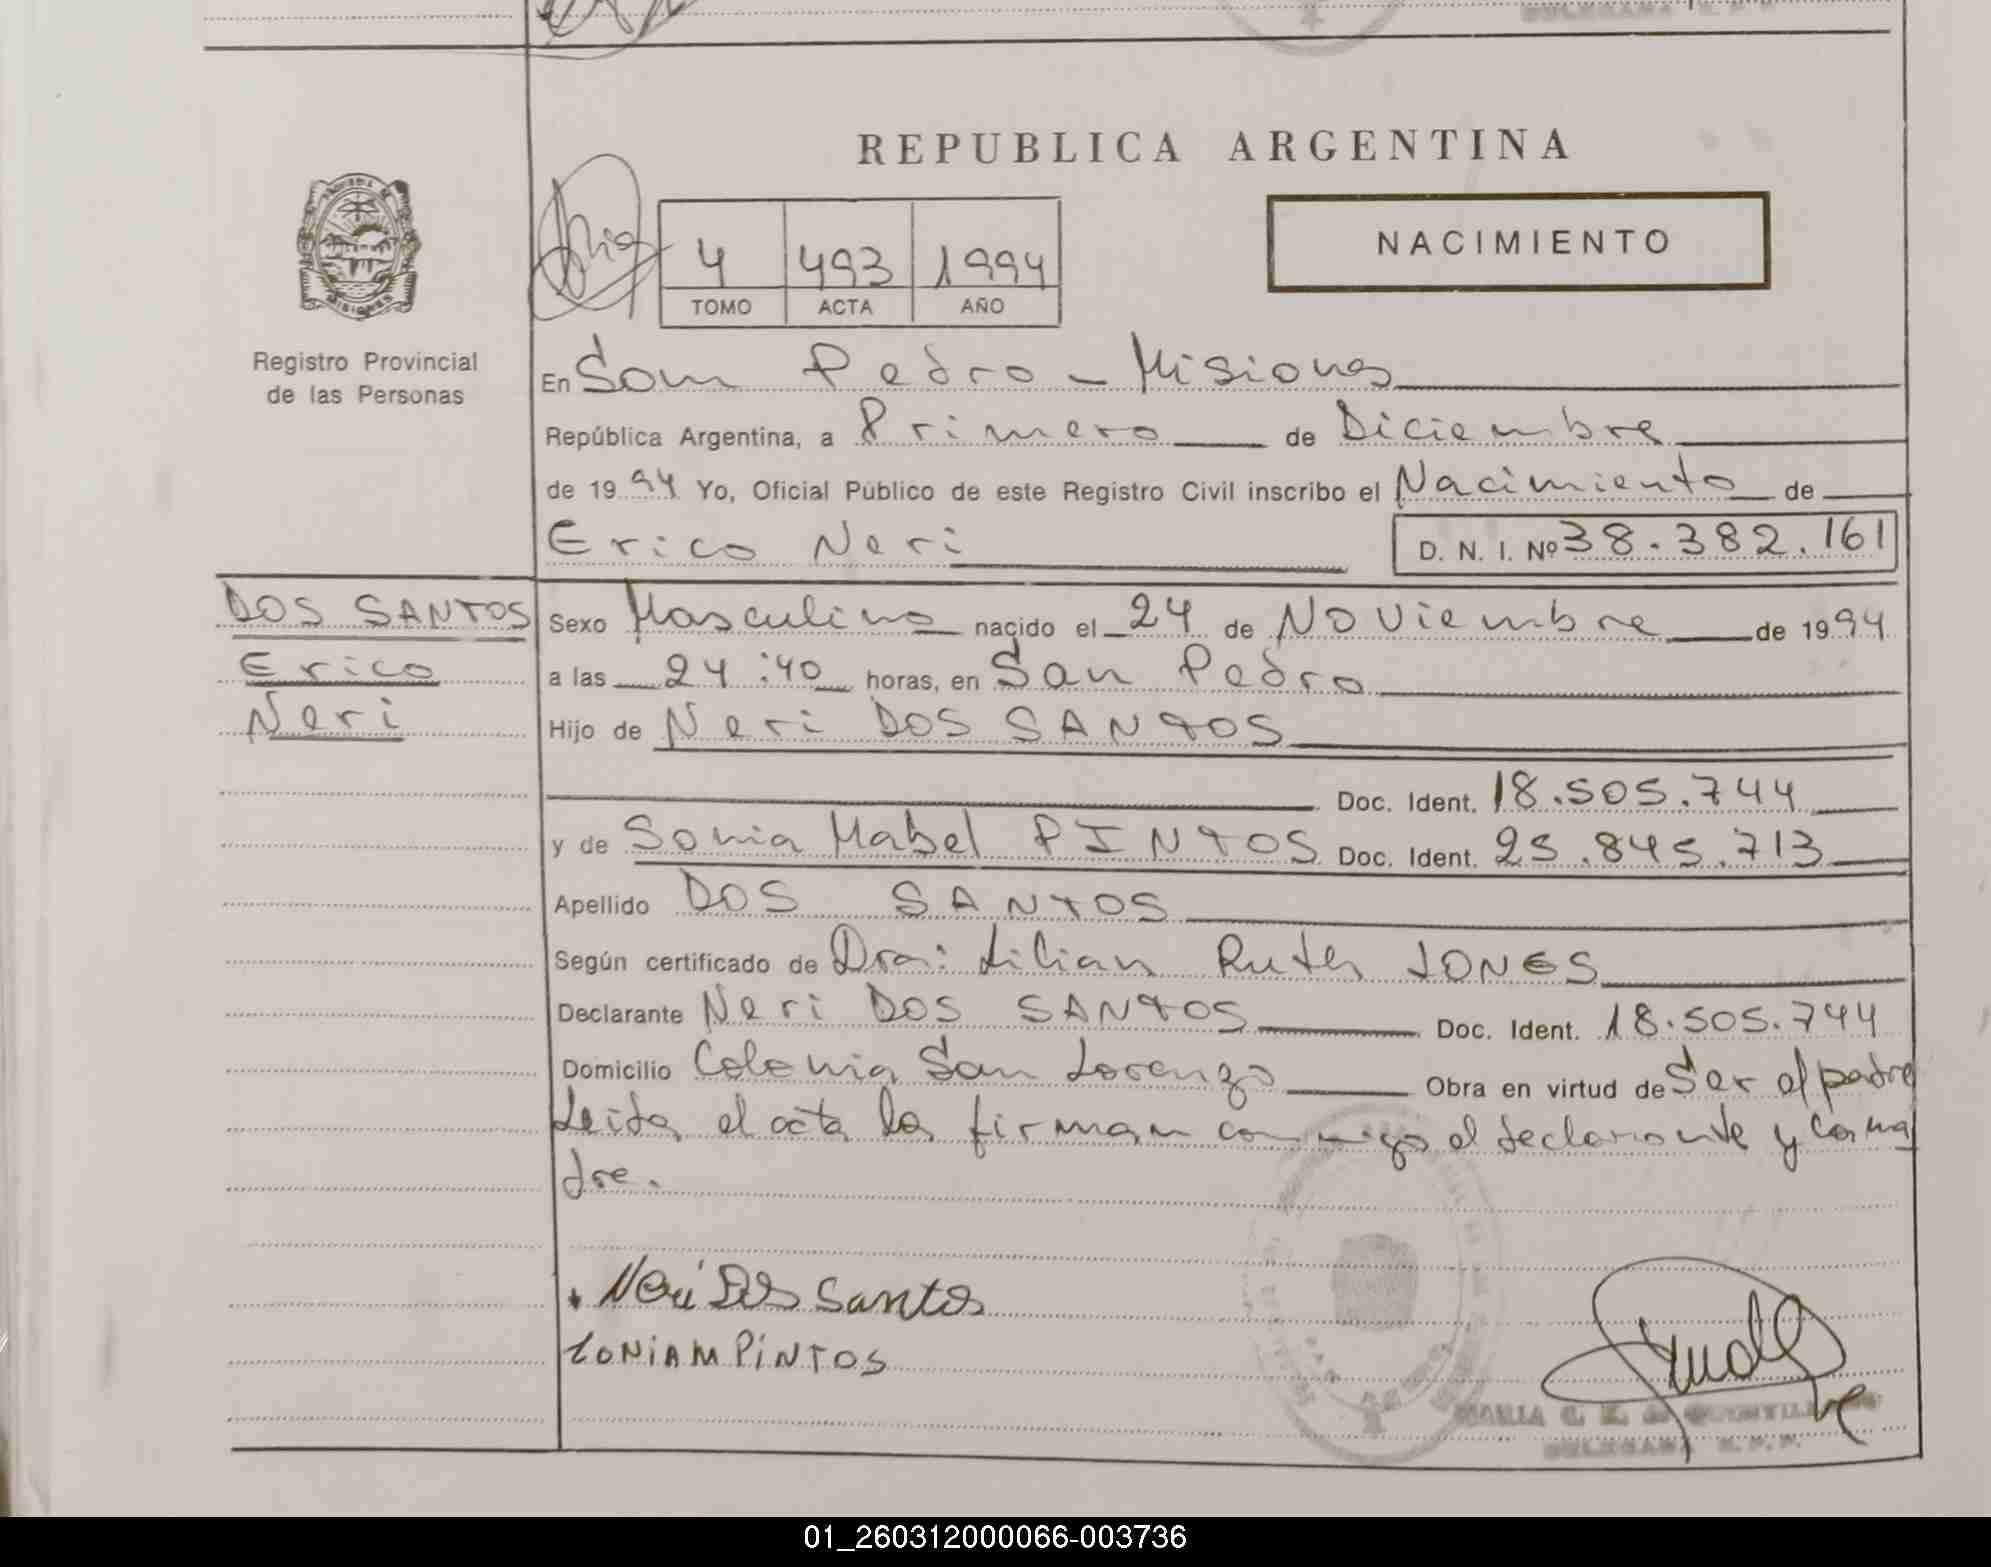 REPUBLICA ARGENTINA
NACIMIENTO
4 493 1994
TOMO ACTA AÑO
Registro Provincial
de las Personas
En San Pedro - Misiones
República Argentina, a Primero de Diciembre
de 1994 Yo, Oficial Público de este Registro Civil inscribo el Nacimiento de
Erico Neri D. N. I. Nº 38.382.161
DOS SANTOS
Erico
Neri
Sexo Masculino nacido el 24 de Noviembre de 1994
a las 24:40 horas, en San Pedro
Hijo de Neri DOS SANTOS
Doc. Ident. 18.505.744
y de Sonia Mabel PINTOS Doc. Ident. 25.845.713
Apellido DOS SANTOS
Según certificado de Dra: Lilian Ruth JONES
Declarante Neri DOS SANTOS Doc. Ident. 18.505.744
Domicilio Colonia San Lorenzo Obra en virtud de Ser el padre
Leida el acta la firman conmigo el declarante y la ma
dre.
Neri Dos Santos
SONIA M PINTOS
MARIA
DELEGADA R.P.P.
01_260312000066-003736